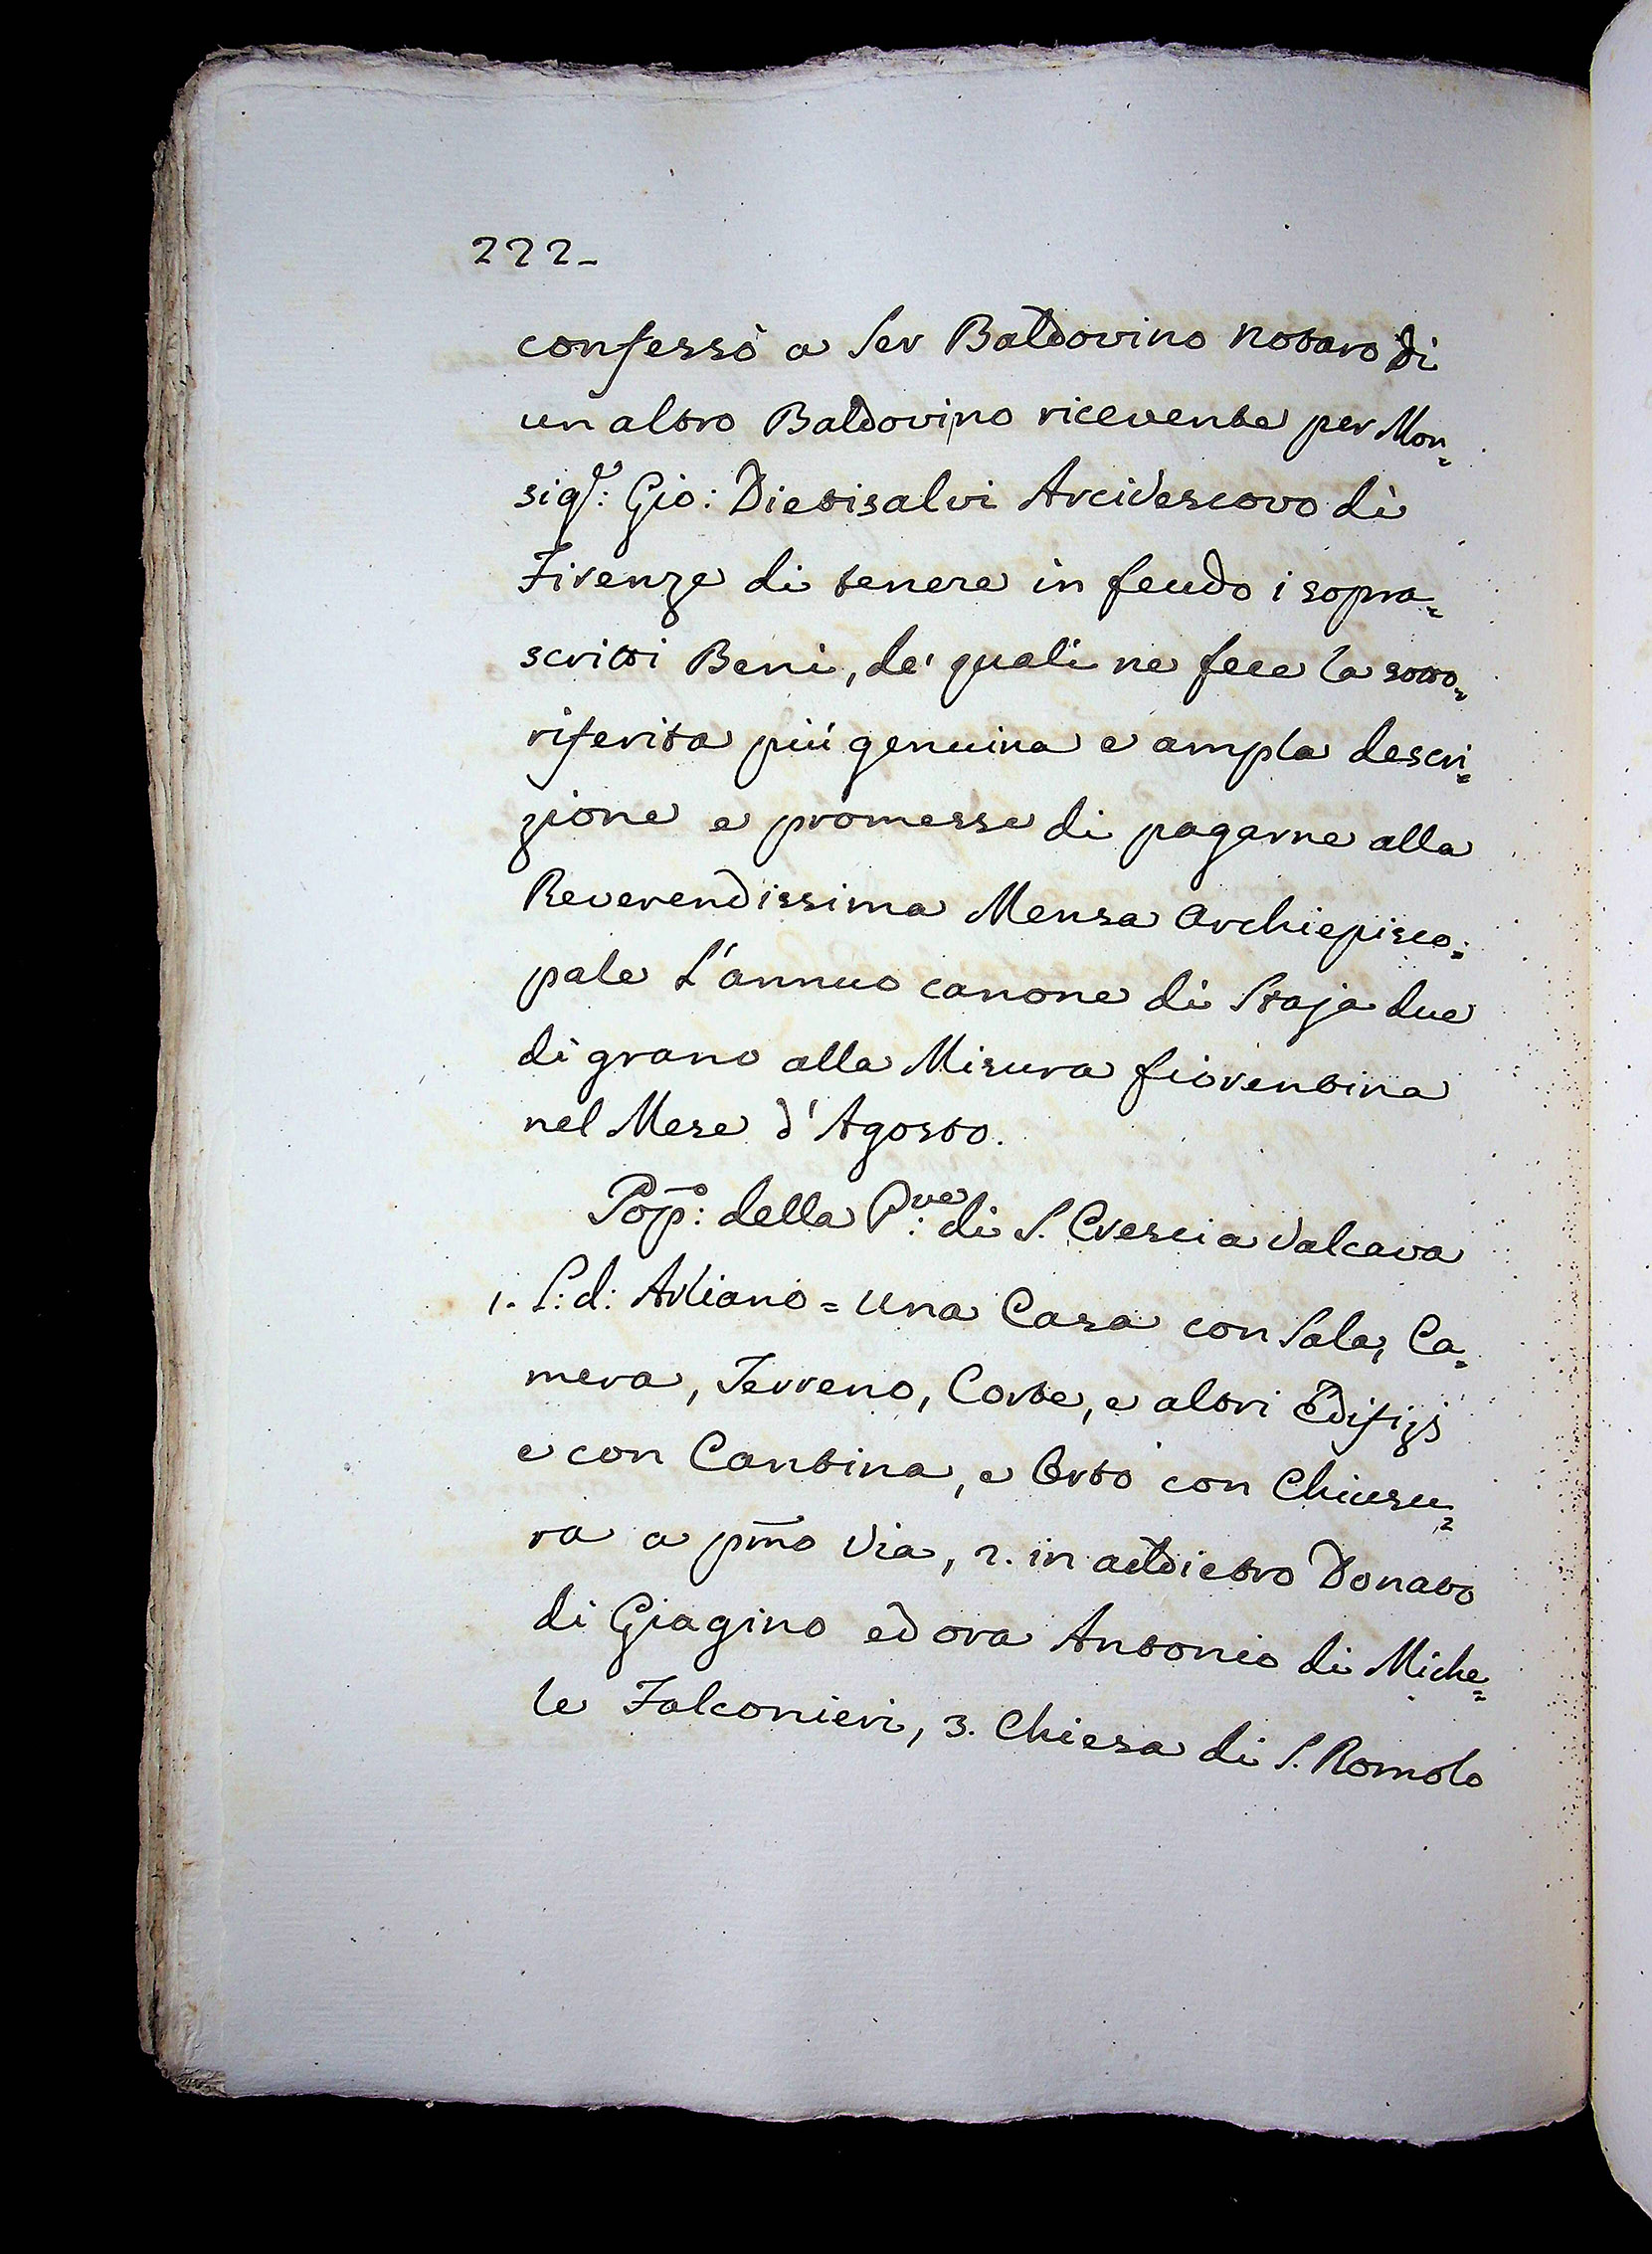 222-
confessò a Ser Baldovino Notaro di
un altro Baldovino ricevente per Mon=
sigr: Gio: Dietisalvi Arcivescovo di
Firenze di tenere in feudo i sopra=
scritti Beni, de' quali ne fece la sotto=
riferita più genuina e ampla descri=
zione e promesse di pagarne alla
Reverendissima Mensa Archiepisco=
pale L'annuo canone di Staja due
di grano alla Misura fiorentina
nel Mese d'Agosto.
Popo: della Pve: di S. Cresci a Valcava
1. L: d: Arliano = Una Casa con Sala, Ca=
mera, Terreno, Corte, e altri Edifizj
e con Cantina, e Orto con Chiusu=
ra a pmo Via, 2. in addietro Donato
di Giagino ed ora Antonio di Miche=
le Falconieri, 3. Chiesa di S. Romolo